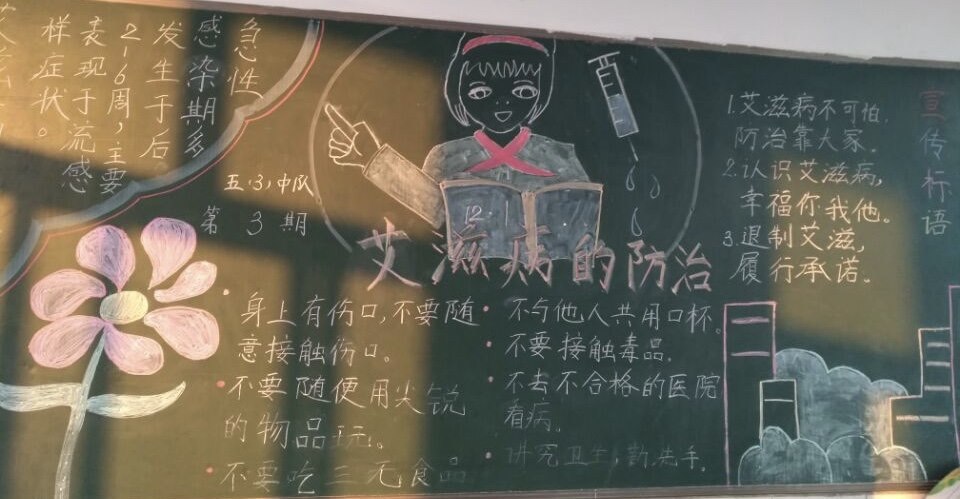 急性
感染期多
发生于后
2-6周,主要
表现于流感
样症状。
五(3)中队
第3期
12.1
艾滋病的防治
身上有伤口,不要随
意接触伤口。
不要随便用尖锐
的物品玩。
不要吃三无食品
不与他人共用口杯。
不要接触毒品。
不去不合格的医院
看病。
讲究卫生,勤洗手。
宣传标语
1.艾滋病不可怕,
防治靠大家。
2.认识艾滋病,
幸福你我他。
3.退制艾滋,
履行承诺。